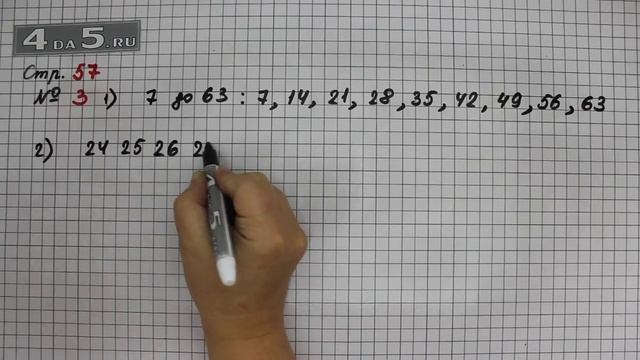 4 DA 5.RU
Стр. 57
№ 3 1) 7 до 63 : 7, 14, 21, 28, 35, 42, 49, 56, 63
2) 24 25 26 2